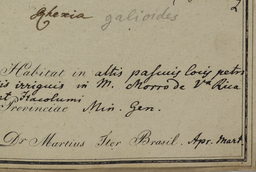 2
Rhexia galioides
Habitat in altis pascuis locis petro
sis irriguis in M. Morro de Va Rica
et Itacolumi
Provinciae Min. Gen.
Dr Martius Iter Brasil. Apr. Mart.